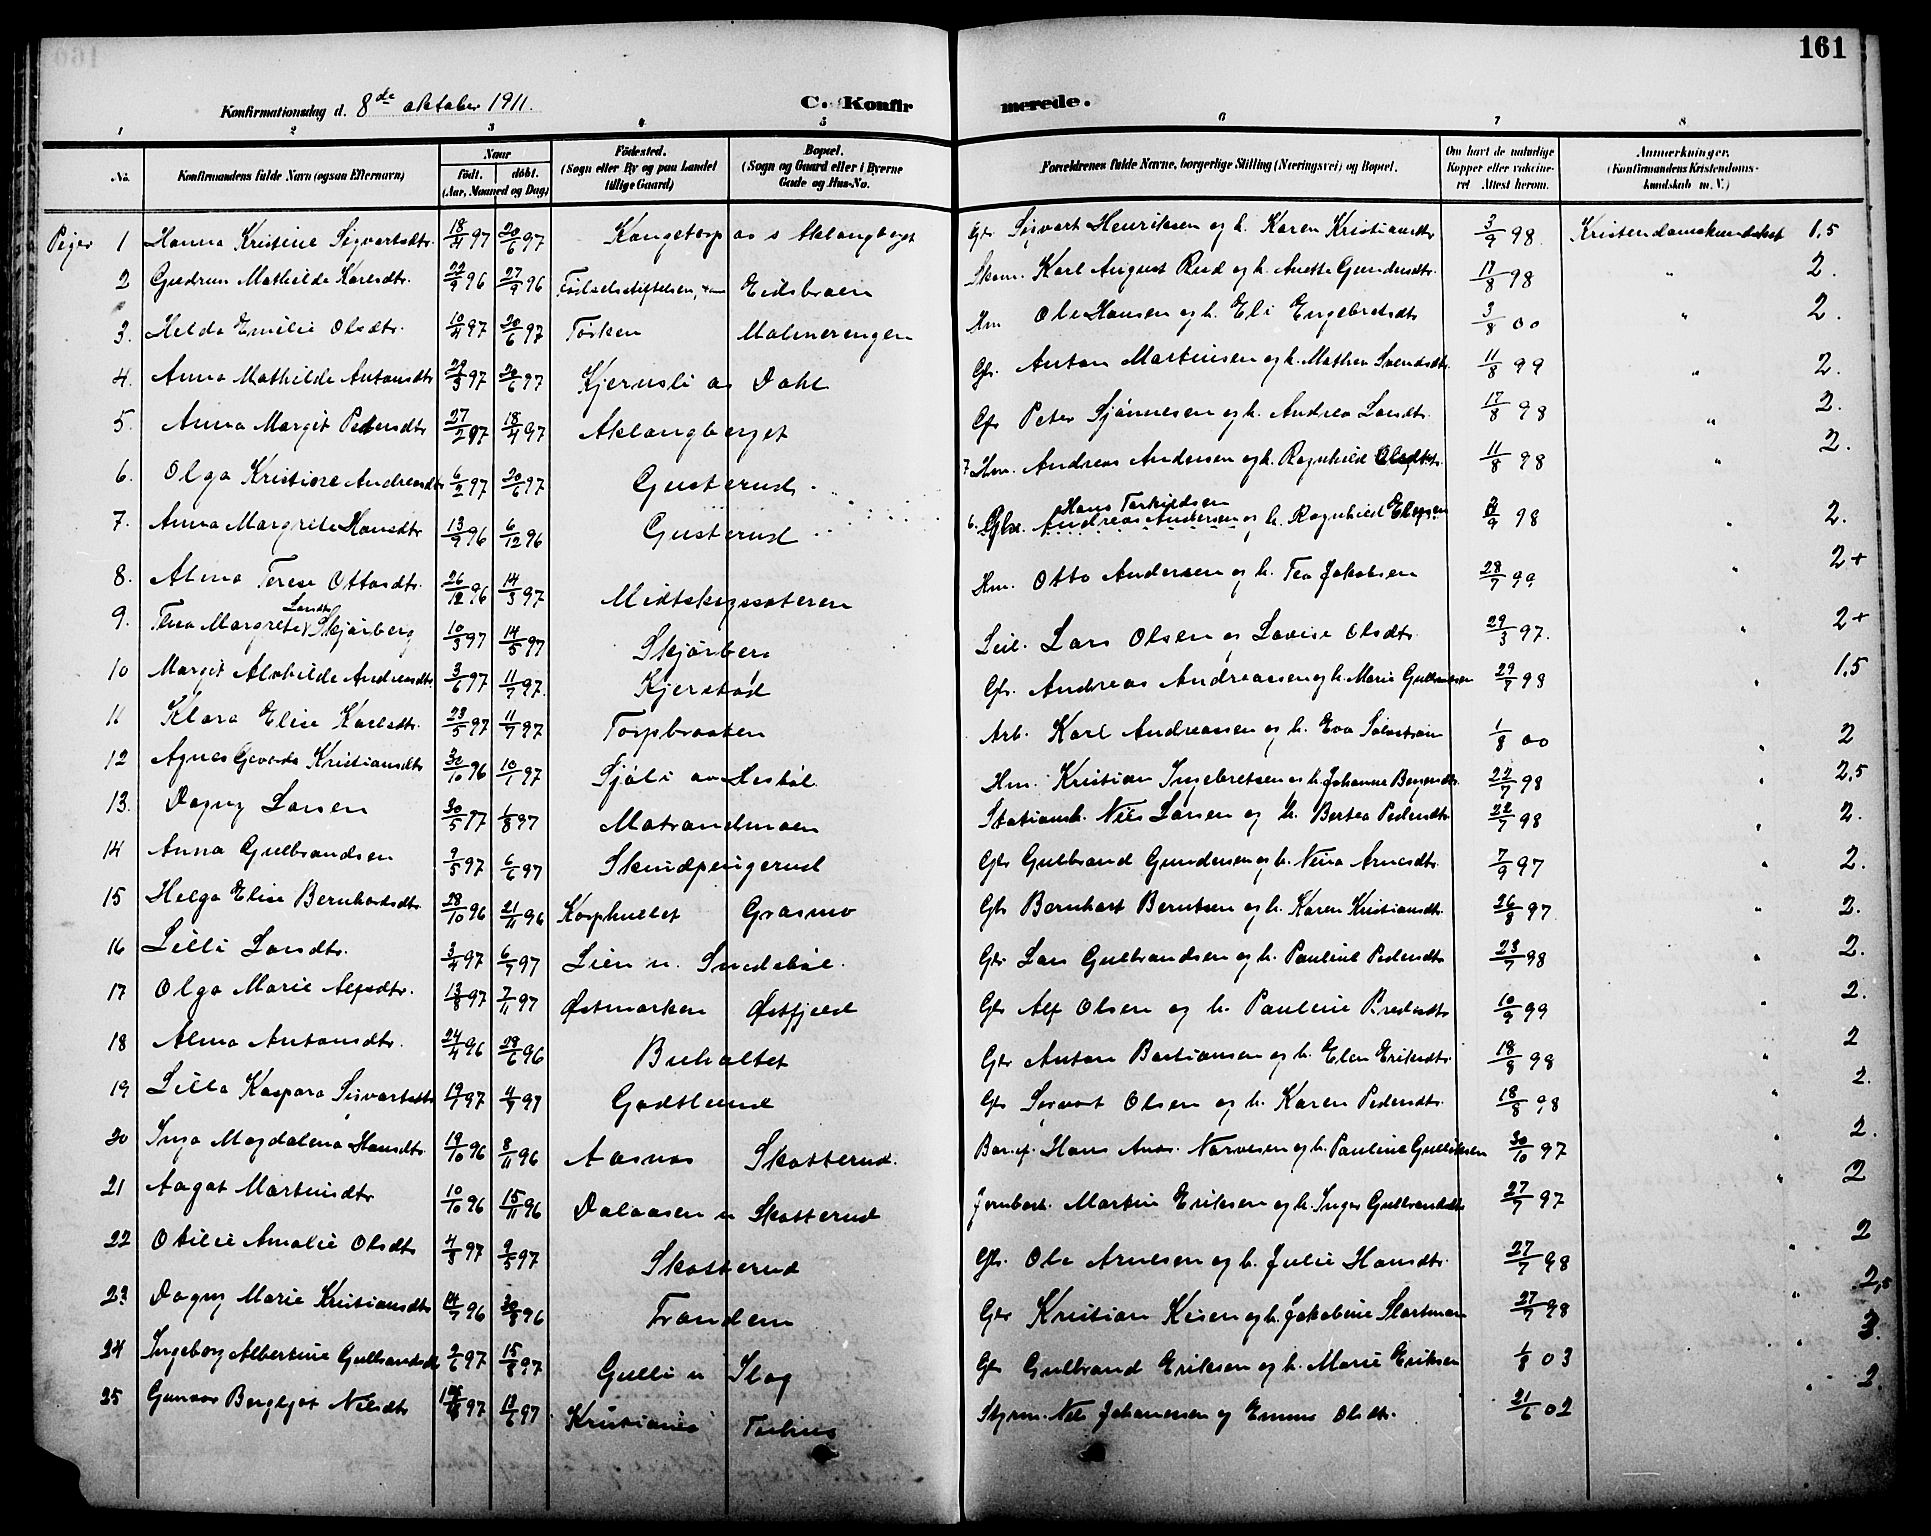 161
Konfirmationsdag d. 8de oktober 1911.
C. Konfir merede.
1 2 3 4 5 6 7 8
No. Konfirmandens fulde Navn (ogsaa Efternavn) Naar født. døbt. (Aar, Maaned og Dag) Fødested. (Sogn eller By og paa Landet tillige Gaard) Bopæl. (Sogn og Gaard eller i Byerne Gade og Hus-No. Forældrenes fulde Navne, borgerlige Stilling (Næringsvei) og Bopæl. Om havt de naturlige Kopper eller vaccineret Attest herom. Anmerkninger. (Konfirmandens Kristendomskundskab m. V.)
Piger 1 Hanna Kristine Sigvartsdtr. 18/4 97 20/6 97 Gbr Sigvart Henriksen og h. Karen Kristiansdtr 3/9 98. Kristendomskundskab 1,5
2 Gudrun Mathilde Karlsdtr. 22/9 96 27/9 96 Fødselsstiftelsen, Eidsbraaen Karl August Rud og h. Anette Gundersdtr. 17/8 98 " 2.
3. Helda Emilie Olsdtr. 10/4 97 20/6 97 Tørken Malmerengen Hm Ole Hansen og h. Eli Engebretsdtr 3/8 00 " 2.
4. Anna Mathilde Antonsdtr 29/3 97 20/6 97 Kjernsli as Dahl Gbr. Anton Martinsen og h. Mathea Svendsdtr. 11/8 99 " 2.
5. Anna Margit Pedersdtr 27/2 97 18/4 97 Aklangberget Gbr Peter Sjønnesen og h. Andrea Larsdtr. 17/8 98 " 2.
6. Olga Kristine Andreasdtr 6/2 97 20/6 97 Gusterud. 7 Hm. Andreas Andersen og h. Ragnhild Olsdtr. 11/8 98 " 2.
7. Anna Margrete Hansdtr 13/9 96 6/12 96 Gusterud 6. Gbr. Hans Torkildsen Andreas Andersen og h. Ragnhild /9 98 " 2.
8. Alma Terese Ottosdtr. 26/12 96 14/3 97 Midtskogsæteren Hm. Otto Andersen og h. Tea Jakobsen 28/7 99 " 2+
9. Thea Margrete Larsdtr Skjørberg 10/3 97 14/5 97 Skjørberg Lars Olsen og Lovise Olsdtr. 29/3 97. " 2+
10 Margit Alvhilde Andreasdtr. 3/6 97 11/7 97. Kjerstad Gbr. Andreas Andreassen og h. Marie Gulbrandsen 29/7 98 " 1,5
11 Klara Elise Karlsdtr. 23/5 97 11/7 97 Torpbraaten Arb. Karl Andreassen og h. Eva 1/8 00 " 2
12 Agnes Gevarda Kristiansdtr 30/10 96 10/1 97 Sjøli av Hesbøl Hm. Kristian Ingebretsen og h. Johanne 22/7 98 " 2,5
13. Dagny Larsen 30/5 97 1/8 97 Matrandmoen Nils Larsen og h. Bertea Pedersdtr 22/7 98 " 2.
14 Anna Gulbrandsen 9/5 97 6/6 97 Skindpengerud Gbr Gulbrand Gundersen og h. Nina Arnesdtr. 7/9 97 " 2.
15 Helga Elise Bernhardsdtr 28/10 96 21/11 96 Korphullet Grasmo Gbr Bernhart Berntsen og h. Karen Kristiansdtr. 26/8 97 " 2.
16 Lilli Larsdtr. 3/4 97 6/7 97 Lien u. Gbr Lars Gulbrandsen og h. Pauline Pedersdtr 23/7 98 " 2.
17 Olga Marie Alfsdtr. 13/8 97 7/11 97 Østmarken Østfjeld Gbr Alf Olsen og h. Pauline 10/9 99 " 2.
18 Alma Antonsdtr. 24/4 96 28/6 96 Buholtet Gbr Anton Bastiansen og h. Elen Eriksdtr. 18/8 98 " 2
19 Lilla Kaspara Sigvartsdtr 97 97 Godtlund Gbr Sigvart Olsen og h. Karen Pedersdtr. 18/8 98 " 2.
20 Inga Magdalena Hansdtr. 19/10 96 8/11 96 Aasnas Skotterud. Hans Ands. Narvesen og h. Pauline Gulliksen 30/10 97 " 2.
21 Aagot Martinsdtr 10/10 96 15/11 96 Dalaasen u Skotterud Martin Eriksen og h. Inger Gulbrandsdtr 27/7 97 " 2
22 Otilie Amalie Olsdtr 4/3 97 9/5 97 Skotterud Gbr. Ole Arnesen og h. Julie Hansdtr. 27/7 98 " 2
23 Dagny Marie Kristiansdtr 14/7 96 30/8 96 Trandem Gbr Kristian og h. Jakobine 27/7 98 " 2,5
24 Ingeborg Albertine Gulbrandsdtr 2/6 97 15/8 97 Gulli u Skog Gbr Gulbrand Eriksen og h. Marie Eriksen 1/8 03 " 3.
25 Gunvor Bergljot Nilsdtr 97 13/6 97. Kristiania Styrm. Nils Johannesen og Emma Olsdtr. 21/6 02 " 2.